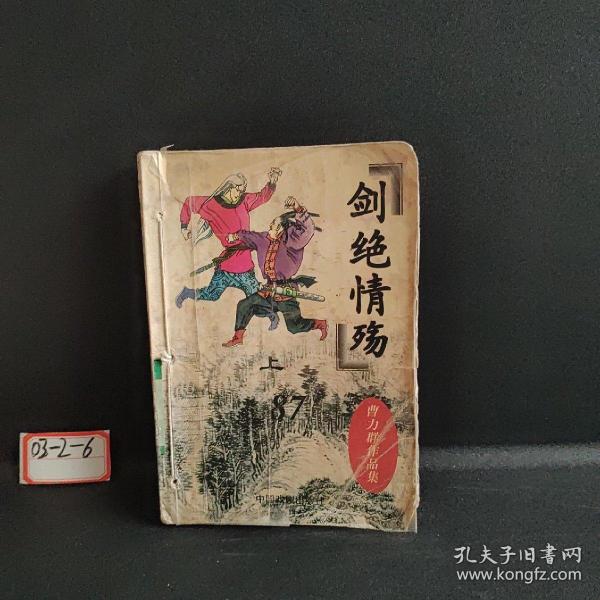 剑绝情殇
上
87
曹力群作品集
中国戏剧出版社
03-2-6
孔夫子旧书网
www.kongfz.com